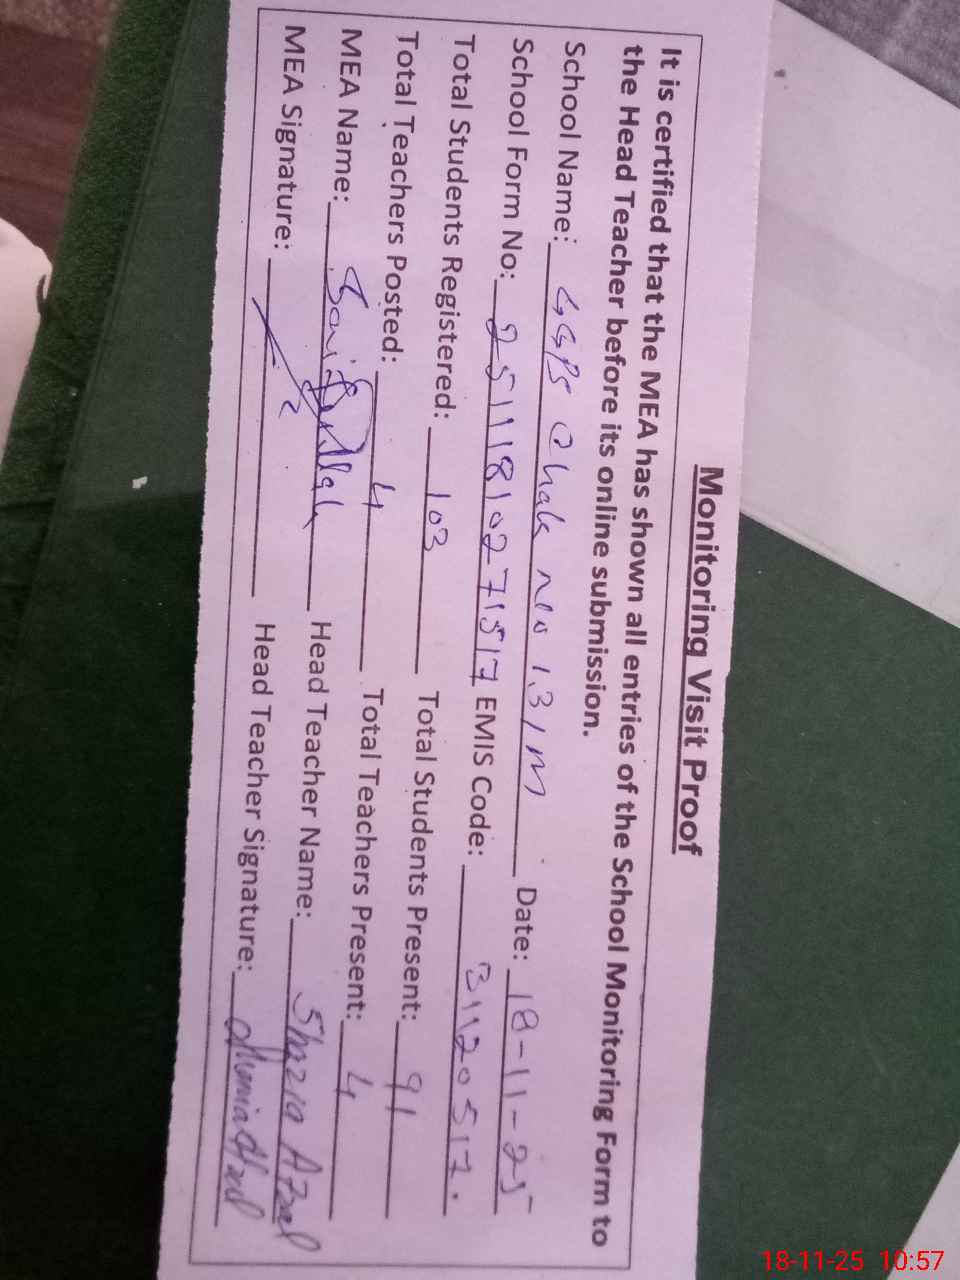 Monitoring Visit Proof
It is certified that the MEA has shown all entries of the School Monitoring Form to
the Head Teacher before its online submission.
School Name: GGPS Chak No 13/M Date: 18-11-25
School Form No: 25111810271517 EMIS Code: 31120517.
Total Students Registered: 103 Total Students Present: 91
Total Teachers Posted: 4 Total Teachers Present: 4
MEA Name: Head Teacher Name: Shazia Afzal
MEA Signature: Head Teacher Signature:
18-11-25 10:57